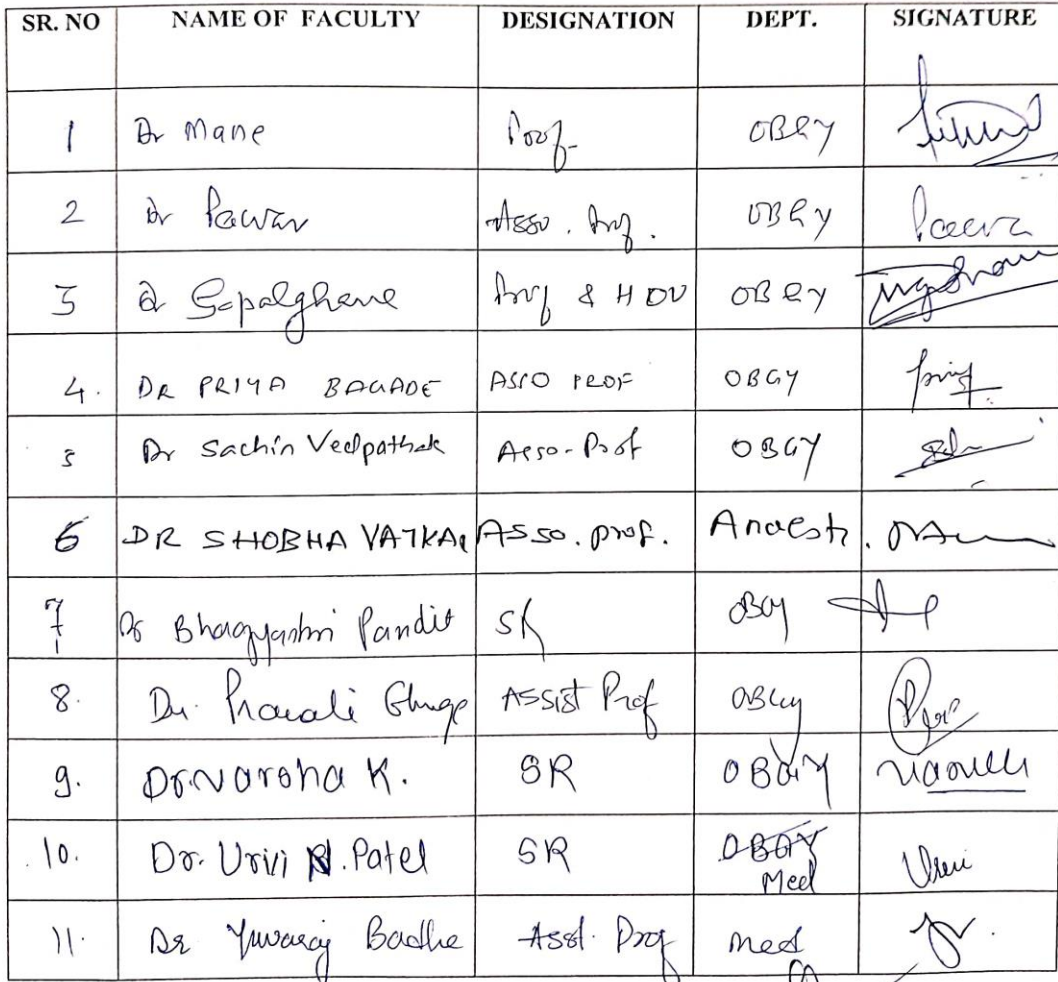 SR. NO NAME OF FACULTY DESIGNATION DEPT. SIGNATURE
1 Dr Mane Prof OBGY
2 Dr Pawar Asso. Prof. OBGY
3 Dr Gopalghare Prof & HOD OBGY
4. DR PRIYA BAGADE ASSO PROF OBGY
5 Dr Sachin Vedpathak Asso-Prof OBGY
6 DR SHOBHA VATKAR Asso. prof. Anaesth.
7 Dr Bhagyashri Pandit SR OBGY
8. Dr. Pravali Ghuge ASSIST Prof OBGY
9. Dr. Varsha K. SR OBGY
10. Dr. Urvi N. Patel SR OBGY
Med
11. Dr Yuvaraj Badhe Asst. Prof Med